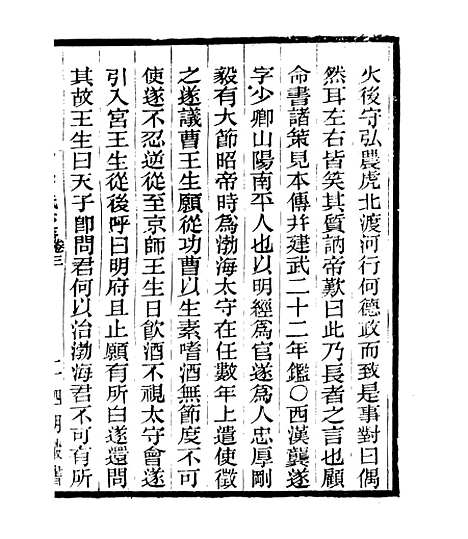 火後守弘農虎北渡河行何德政而致是事對曰偶
然耳左右皆笑其質訥帝歎曰此乃長者之言也顧
命書諸策見本傳幷建武二十二年鑑○西漢龔遂
字少卿山陽南平人也以明經爲官遂爲人忠厚剛
毅有大節昭帝時爲渤海太守在任數年上遣使徵
之遂議曹王生願從功曹以生素嗜酒無節度不可
使遂不忍逆從至京師王生日飮酒不視太守會遂
引入宮王生從後呼曰明府且止願有所白遂還問
其故王生曰天子卽問君何以治渤海君不可有所
卷三
四明叢書